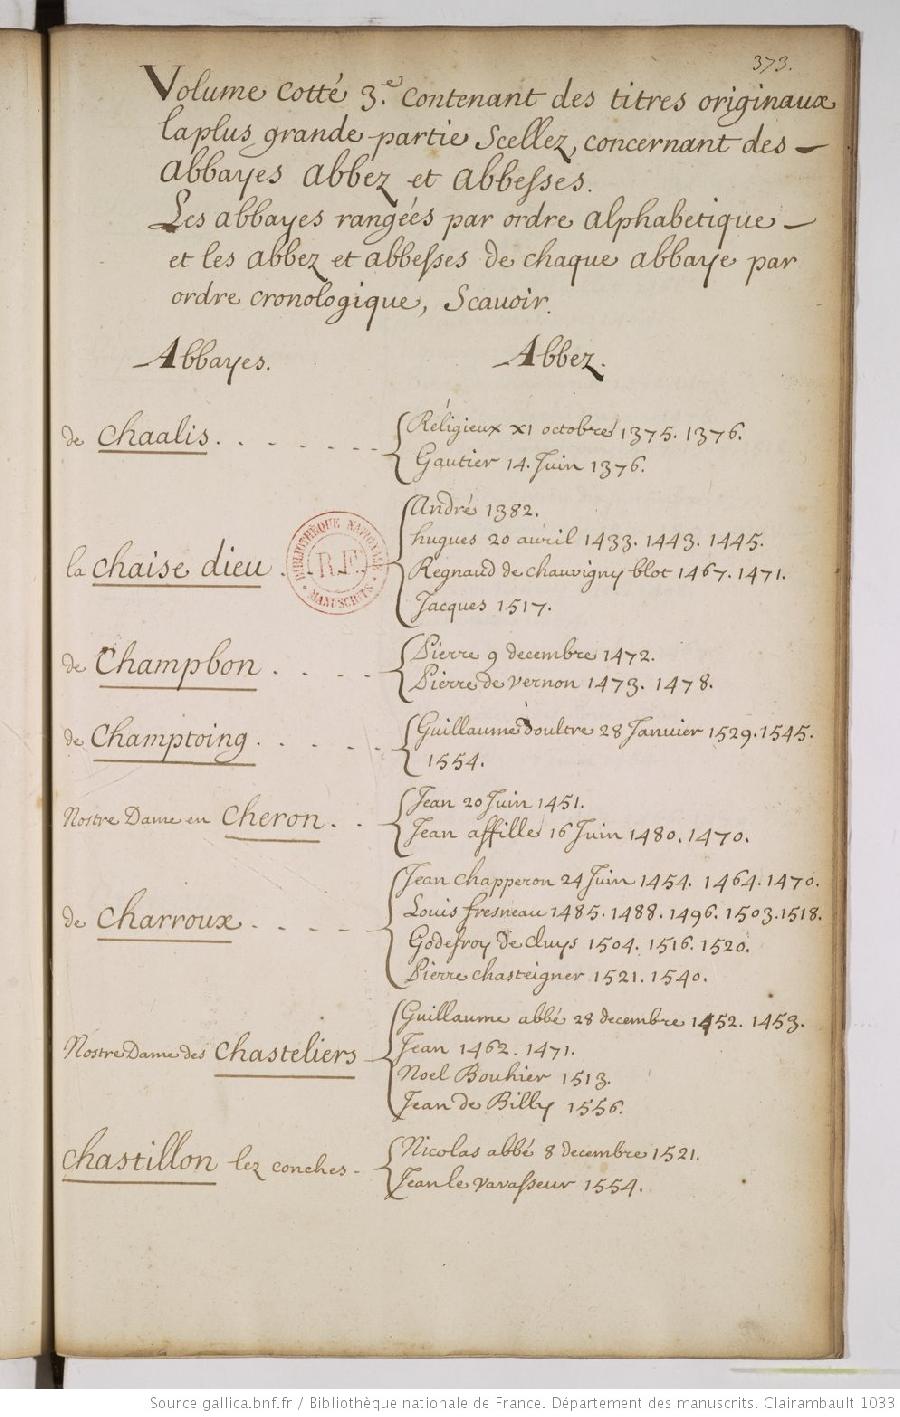 373.
Volume cotté 3.e contenant des titres originaux
la plus grande partie Scellez, concernant des
abbayes abbez et abbesses.
Les abbayes rangées par ordre alphabetique
et les abbez et abbesses de chaque abbaye par
ordre cronologique, Scavoir.
Abbayes. Abbez.
de Chaalis. Réligieux XI octobre 1375. 1376.
Gautier 14. Juin 1376.
André 1382.
hugues 20 auril 1433. 1443. 1445.
la chaise dieu. Regnaud de chauvigny blot 1467. 1471.
Jacques 1517.
BIBLIOTHÈQUE NATIONALE
R.F.
MANUSCRITS
de Champbon. Pierre 9 decembre 1472.
Pierre de vernon 1473. 1478.
de Champtoing. Guillaume doultre 28 Janvier 1529. 1545.
1554.
Nostre Dame en Cheron. Jean 20 Juin 1451.
Jean affille 16 Juin 1480. 1470.
Jean chapperon 24 Juin 1454. 1464. 1470.
de Charroux. Louis fresneau 1485. 1488. 1496. 1503. 1518.
Godefroy de cluys 1504. 1516. 1520.
Pierre chasteigner 1521. 1540.
Guillaume abbé 28 decembre 1452. 1453.
Nostre Dame des Chasteliers Jean 1462. 1471.
Noel Bouhier 1513.
Jean de Billy 1556.
Chastillon lez conches Nicolas abbé 8 decembre 1521.
Jean le vavasseur 1554.
Source gallica.bnf.fr / Bibliothèque nationale de France. Département des manuscrits. Clairambault 1033